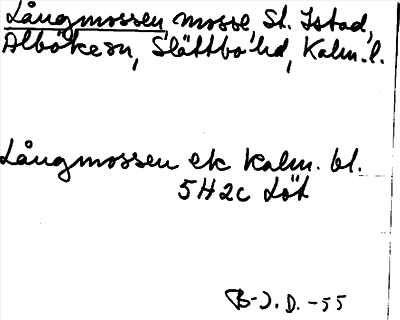 Långmossen, mosse, St. Istad,
Alböke sn, Slättbo hd, Kalm. l.
Långmossen ek kalm. bl.
5H2c Löt
B-J. D. -55